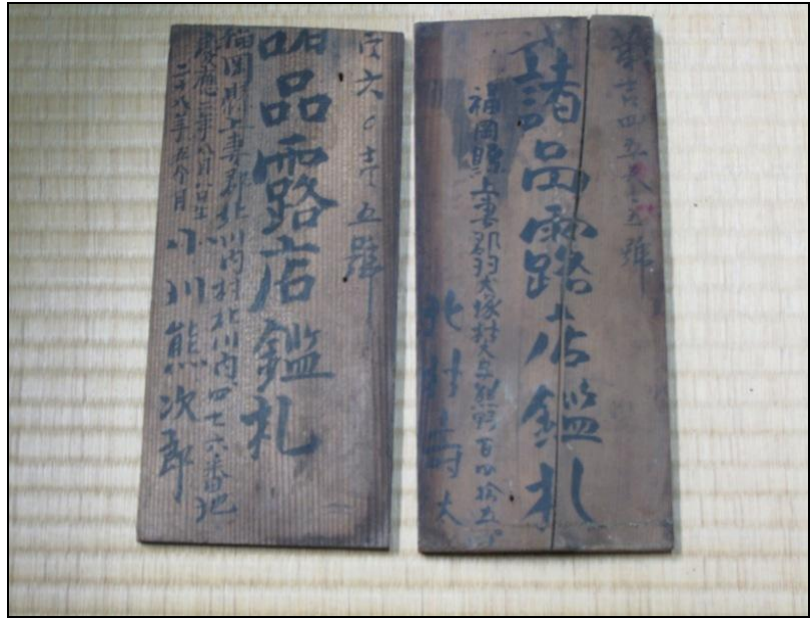 五號
諸品露店鑑札
福岡縣上妻郡羽犬塚村大字熊野百四拾五
北村壽太
六〇壱五號
諸品露店鑑札
福岡縣上妻郡北川内村北川内四七六番地
慶應三年八月八日生
二十八年五ヶ月
小川熊次郎